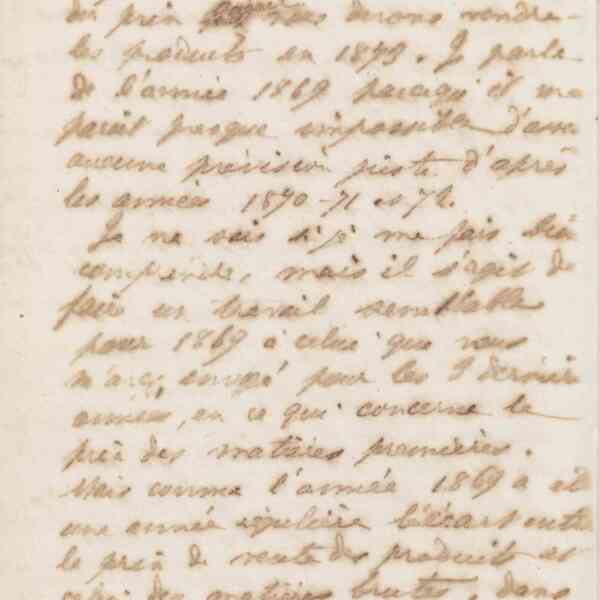 du prix nous devons vendre
les produits en 1873. Je parle
de l'année 1869 parcequ'il me
parait presque impossible d'
aucune prévision juste d'après
les années 1870-71 et 72.
Je ne sais si je me fais bien
comprendre, mais il s'agit de
faire un travail semblable
pour 1869 à celui que vous
m'avez envoyé pour les 3 dernières
années, en ce qui concerne le
prix des matières premières.
Mais comme l'année 1869 a été
une année régulière l'écart entre
le prix de vente des produits et
celui des matières brutes, dans